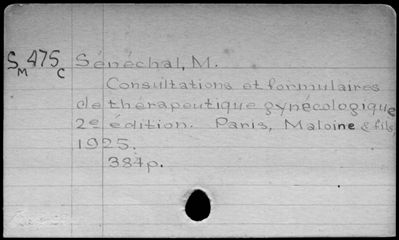 S 475 Sénéchal, M.
M C
Consultations et formulaires
de thérapeutique gynécologique
2e édition. Paris, Maloine & fils
1925.
384p.